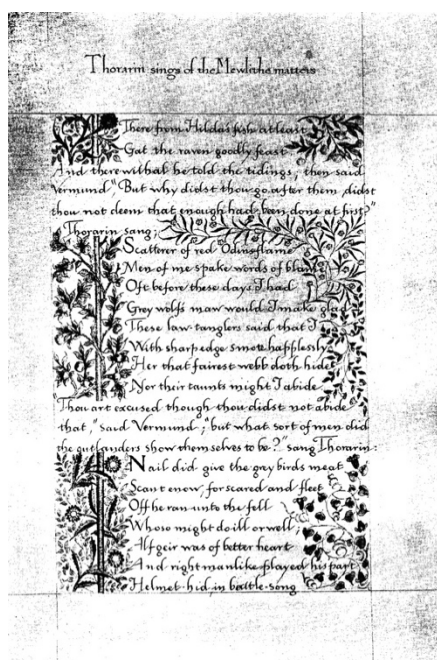 Thorarin sings of the Mewlithe matters
There from Hilda's fish at least
Gat the raven goodly feast
And there withal he told the tidings; then said
Vermund "But why didst thou go after them, didst
thou not deem that enough had been done at first?"
Thorarin sang;
Scatterer of red Odinsflame
Men of me spake words of blame
Oft before these days I had
Grey wolfs maw would I make glad
These law-tanglers said that I
With sharp edge smote happlessly
Her that fairest webb doth hide
Nor their taunts might I abide
"Thou art excused though thou didst not abide
that," said Vermund; "but what sort of men did
the outlanders show themselves to be?" sang Thorarin:
Nail did give the grey birds meat
Scant enow, for scared and fleet
Off he ran unto the fell
Whoso might do ill or well;
Alfgeir was of better heart
And right manlike played his part
Helmet-hid, in battle-song